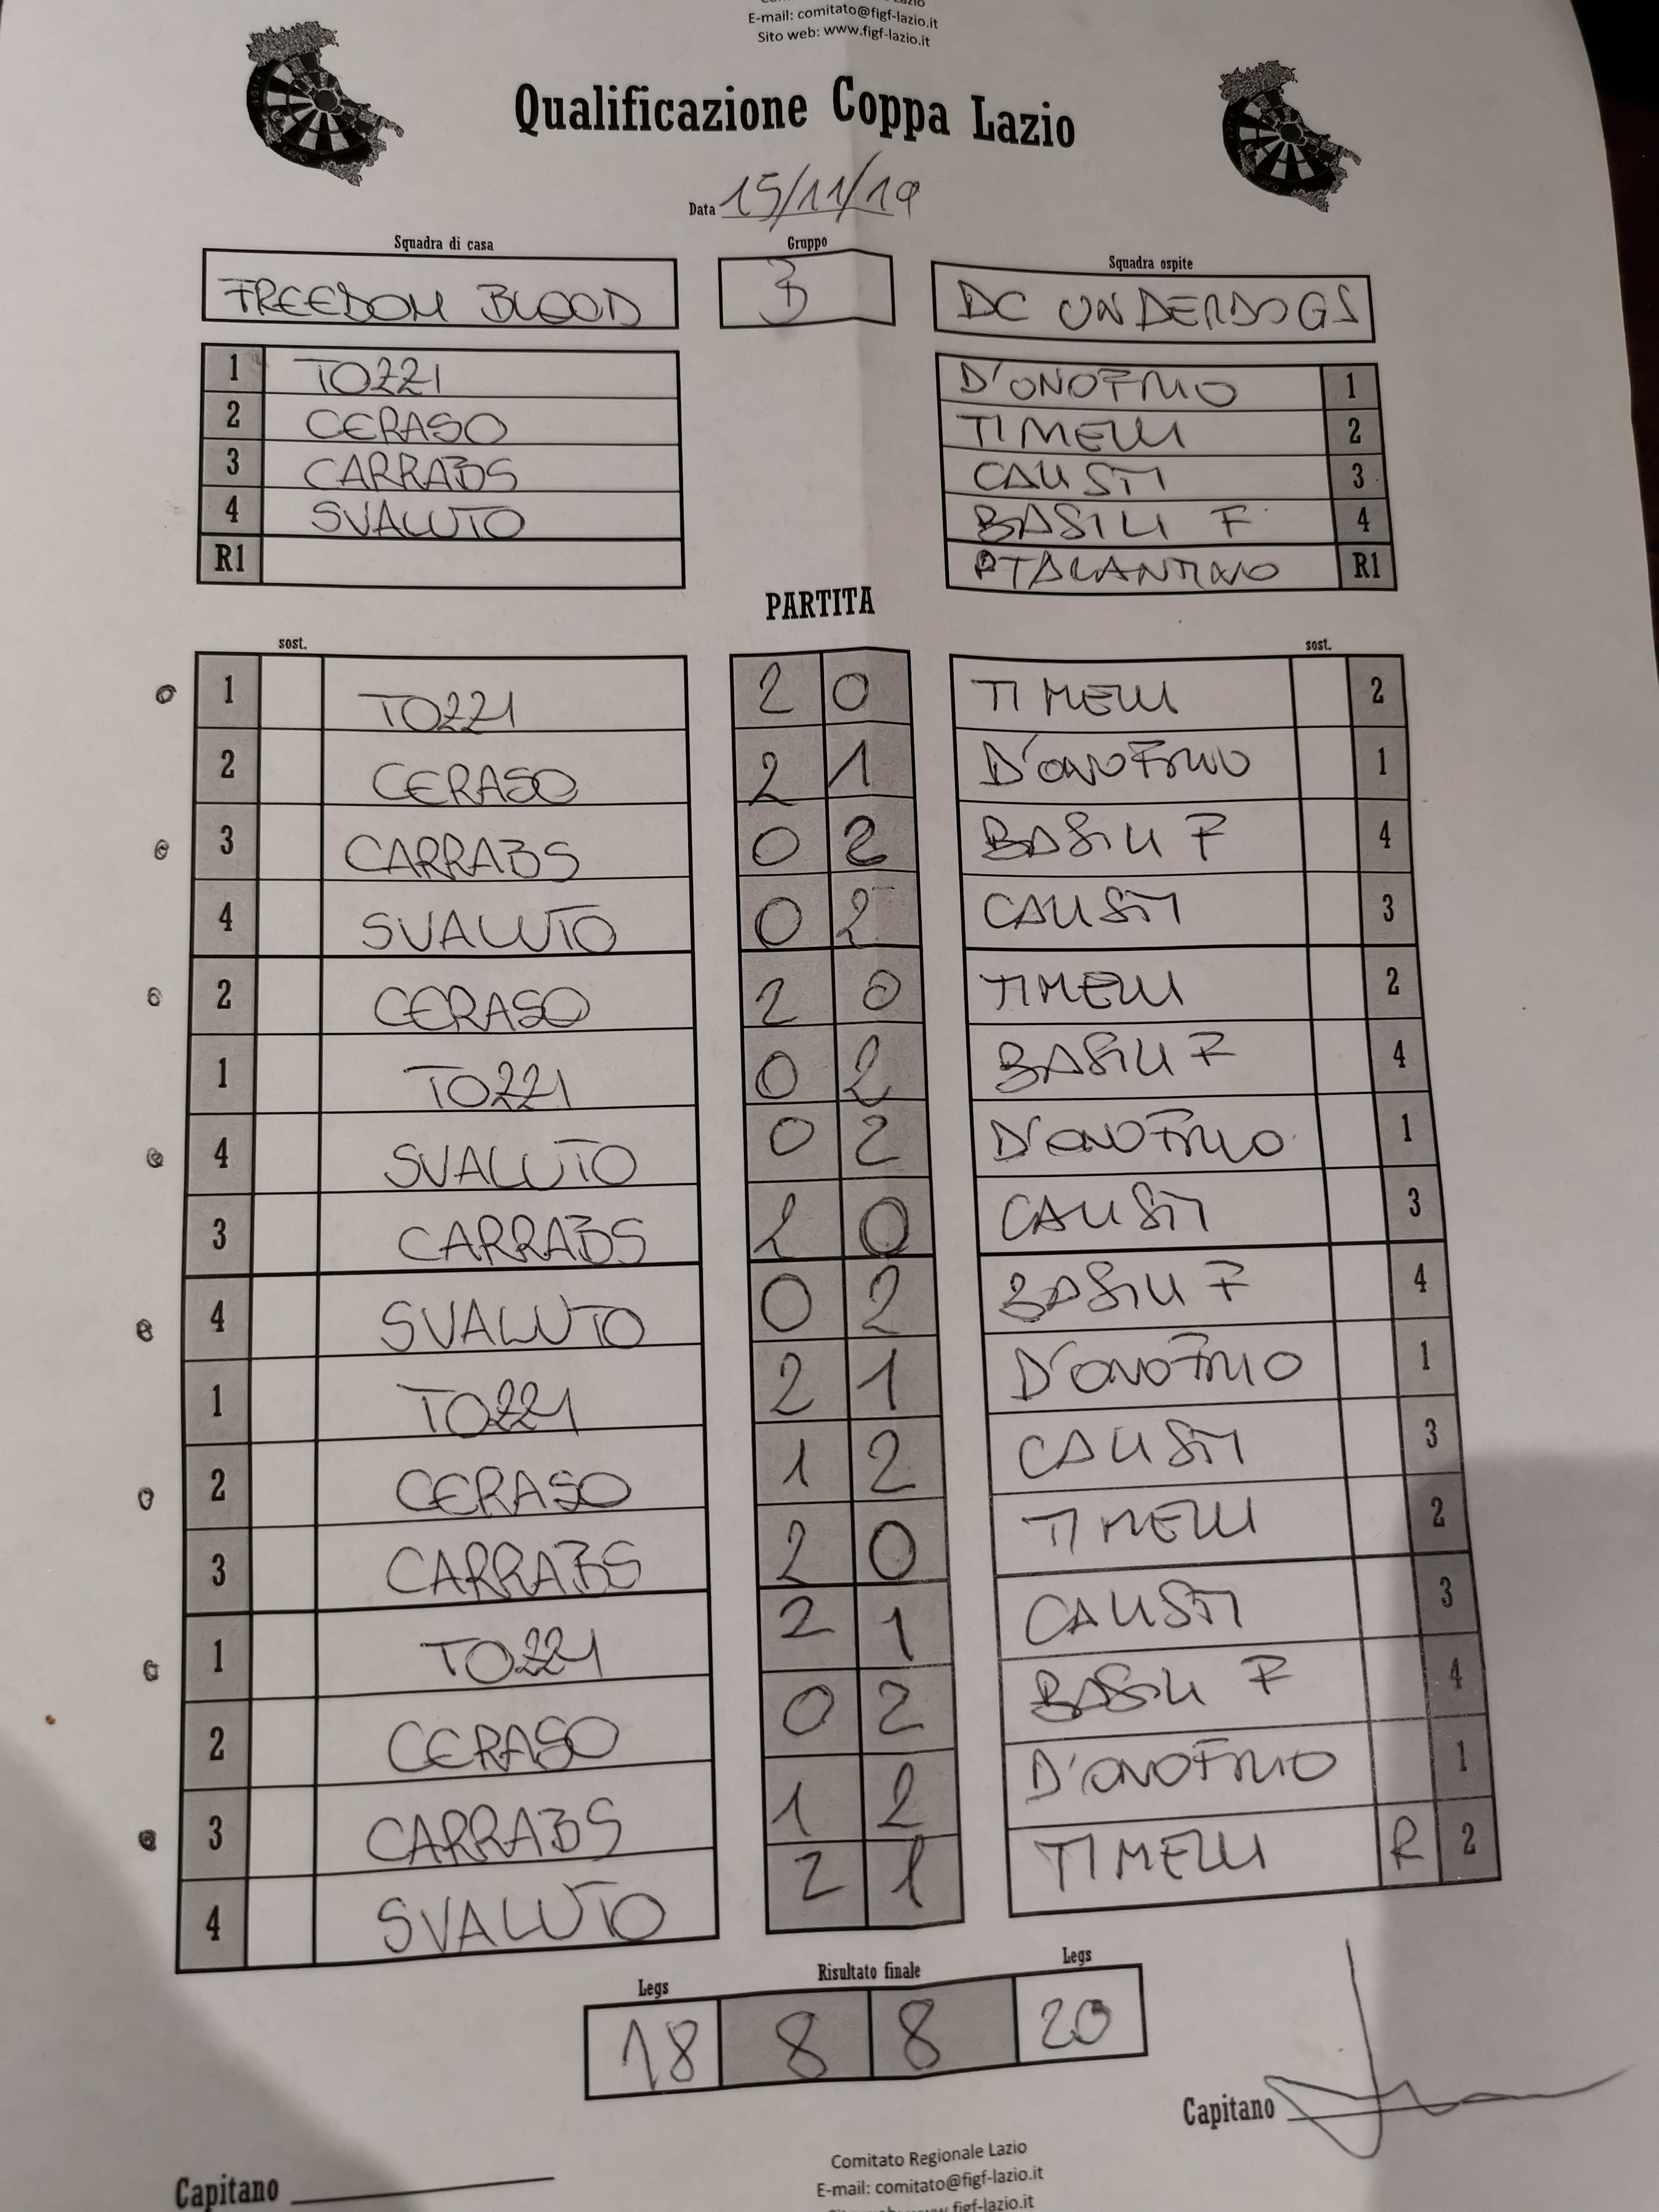 E-mail: comitato@figf-lazio.it
Sito web: www.figf-lazio.it
Qualificazione Coppa Lazio
Data 15/11/19
Squadra di casa Gruppo Squadra ospite
FREEDOM BLOOD B DC UNDERDOGS
1 TOZZI D'ONOFRIO 1
2 CERASO TIMELLI 2
3 CARRABS CALISTI 3
4 SVALUTO BASILI F 4
R1 ATALANTINO R1
PARTITA
sost. sost.
1 TOZZI 2 0 TIMELLI 2
2 CERASO 2 1 D'ONOFRIO 1
3 CARRABS 0 2 BASILI F 4
4 SVALUTO 0 2 CALISTI 3
2 CERASO 2 0 TIMELLI 2
1 TOZZI 0 2 BASILI F 4
4 SVALUTO 0 2 D'ONOFRIO 1
3 CARRABS 2 0 CALISTI 3
4 SVALUTO 0 2 BASILI F 4
1 TOZZI 2 1 D'ONOFRIO 1
2 CERASO 1 2 CALISTI 3
3 CARRABS 2 0 TIMELLI 2
1 TOZZI 2 1 CALISTI 3
2 CERASO 0 2 BASILI F 4
3 CARRABS 1 2 D'ONOFRIO 1
4 SVALUTO 2 1 TIMELLI R 2
Legs Risultato finale Legs
18 8 8 20
Capitano
Capitano
Comitato Regionale Lazio
E-mail: comitato@figf-lazio.it